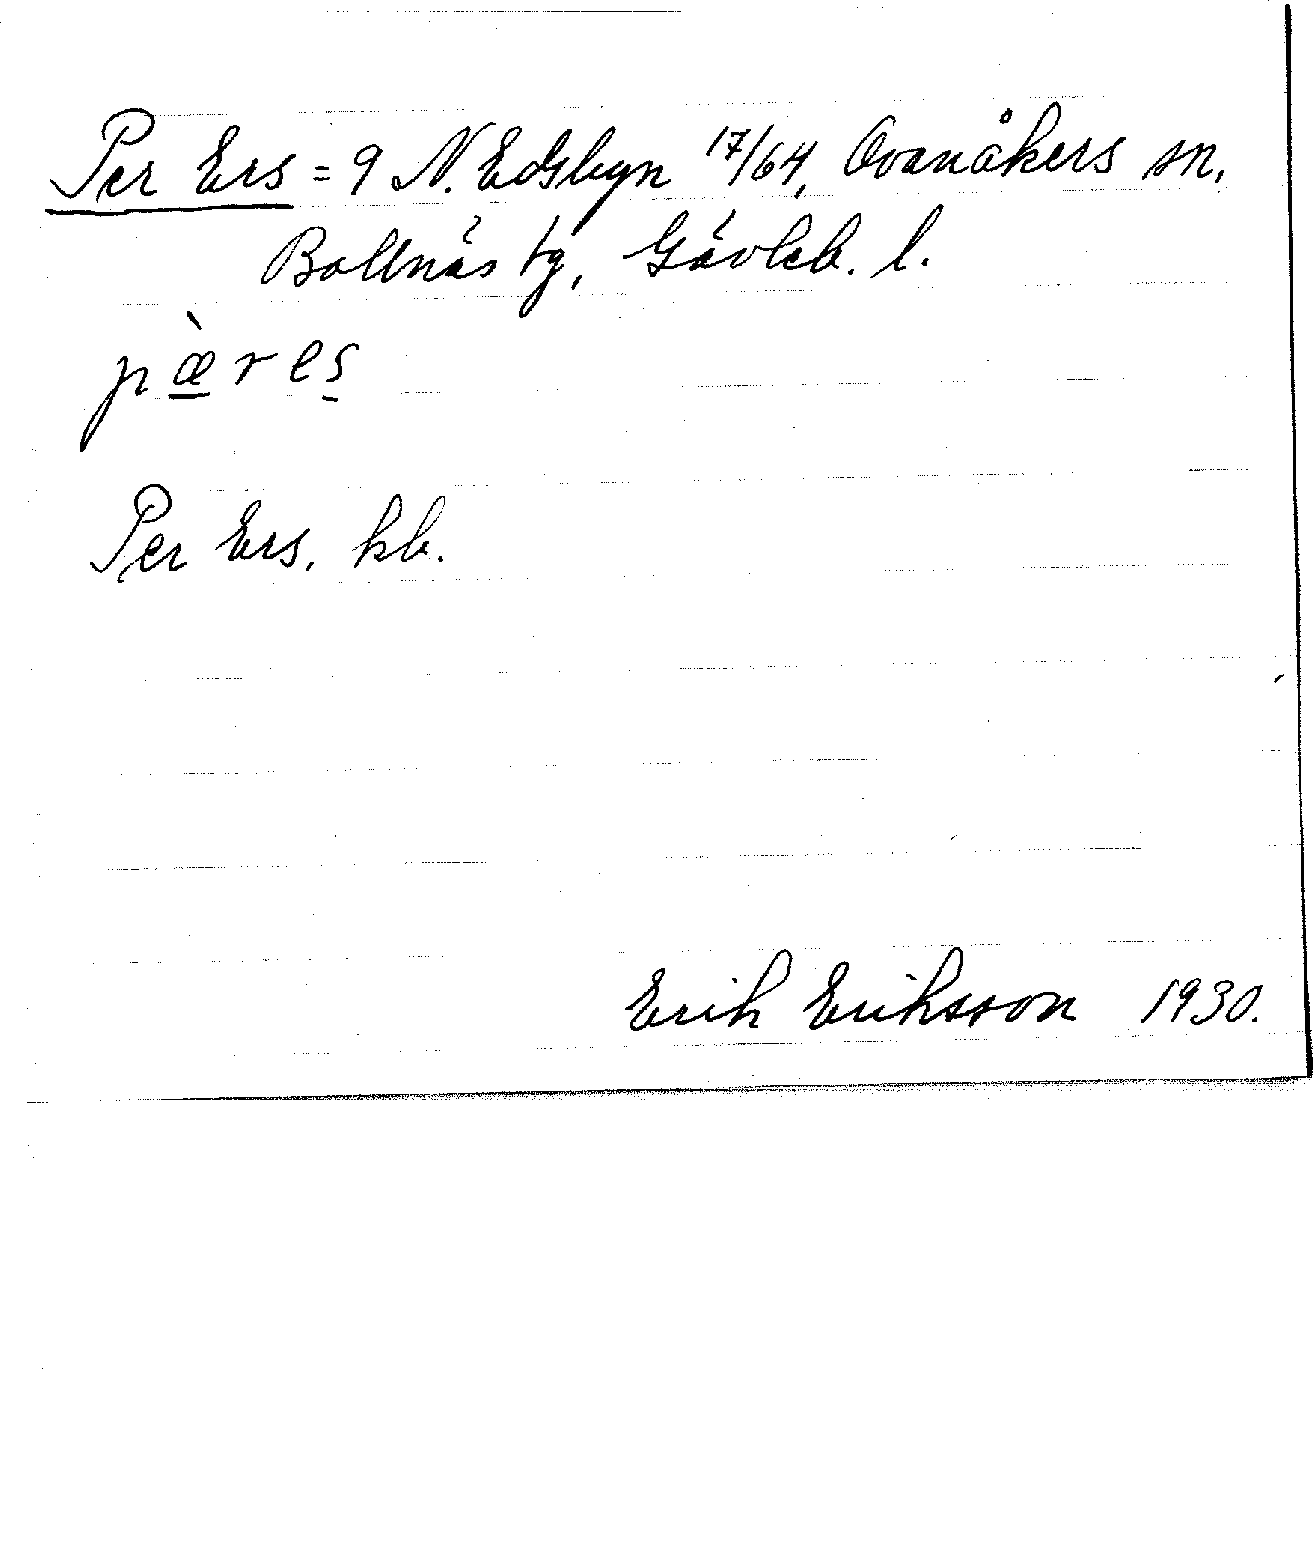 Per Ers = 9 N. Edsbyn 17/64, Ovanåkers sn,
Bollnäs tg, Gävleb. l.
pæ̀res
Per Ers. kb.
Erik Eriksson 1930.